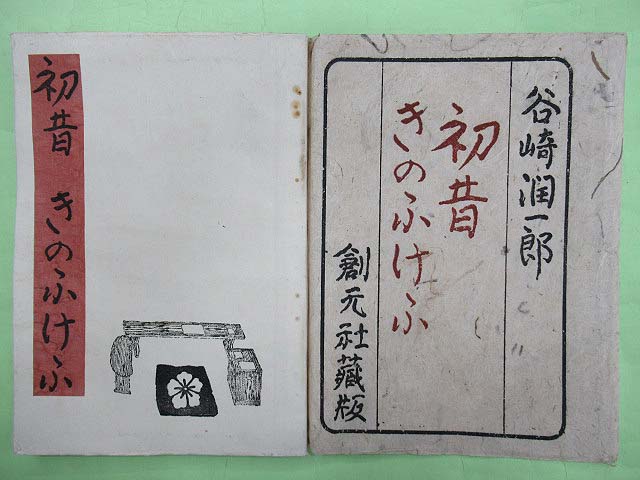 初昔 きのふけふ
谷崎潤一郎
初昔
きのふけふ
創元社藏版